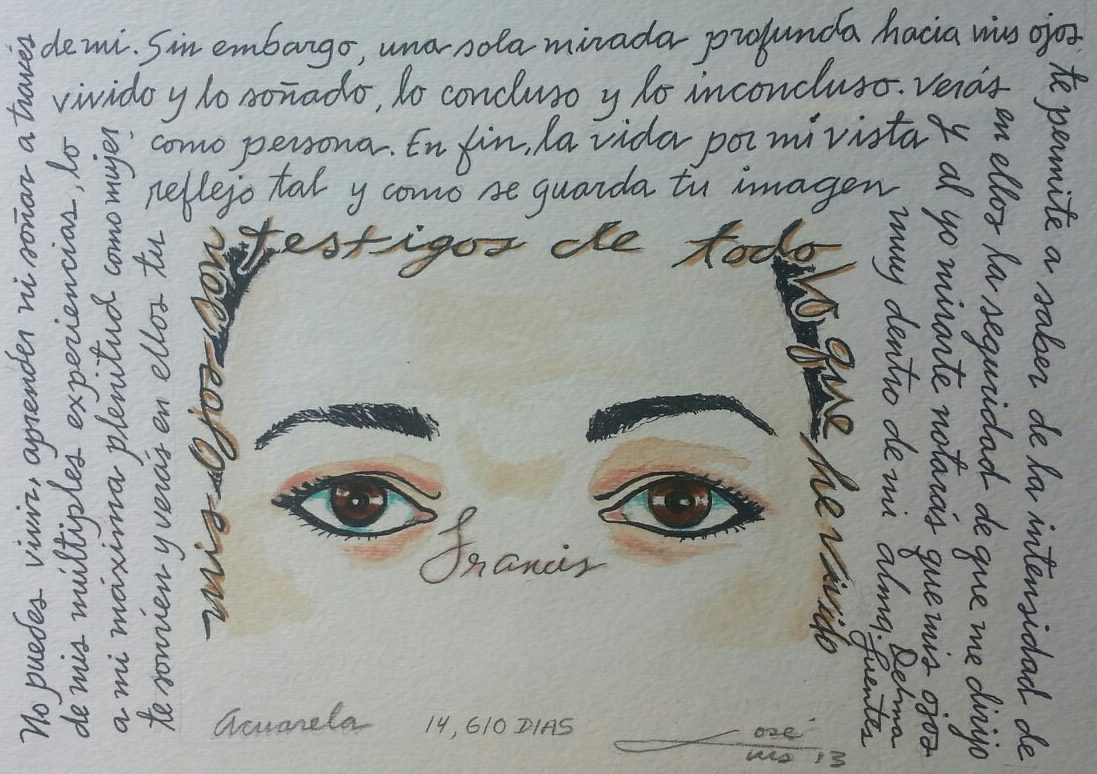 No puedes vivir, aprender ni soñar a través
de mi. Sin embargo, una sola mirada profunda hacia mis ojos,
te permite a saber de la intensidad de
de mis múltiples experiencias, lo
vivido y lo soñado, lo concluso y lo inconcluso. Verás
en ellos la seguridad de que me dirijo
a mi máxima plenitud como mujer
como persona. En fin, la vida por mi vista
y al yo mirarte notarás que mis ojos
te sonríen y verás en ellos tu
reflejo tal y como se guarda tu imagen
muy dentro de mi alma.
Delma
Fuentes
mis ojos son
testigos de todo
lo que he vivido
Francis
Acuarela
14,610 DIAS
José
'13